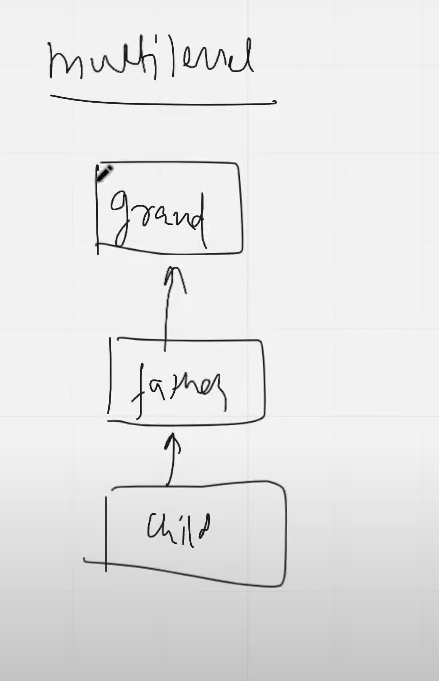 multilevel
grand
father
child